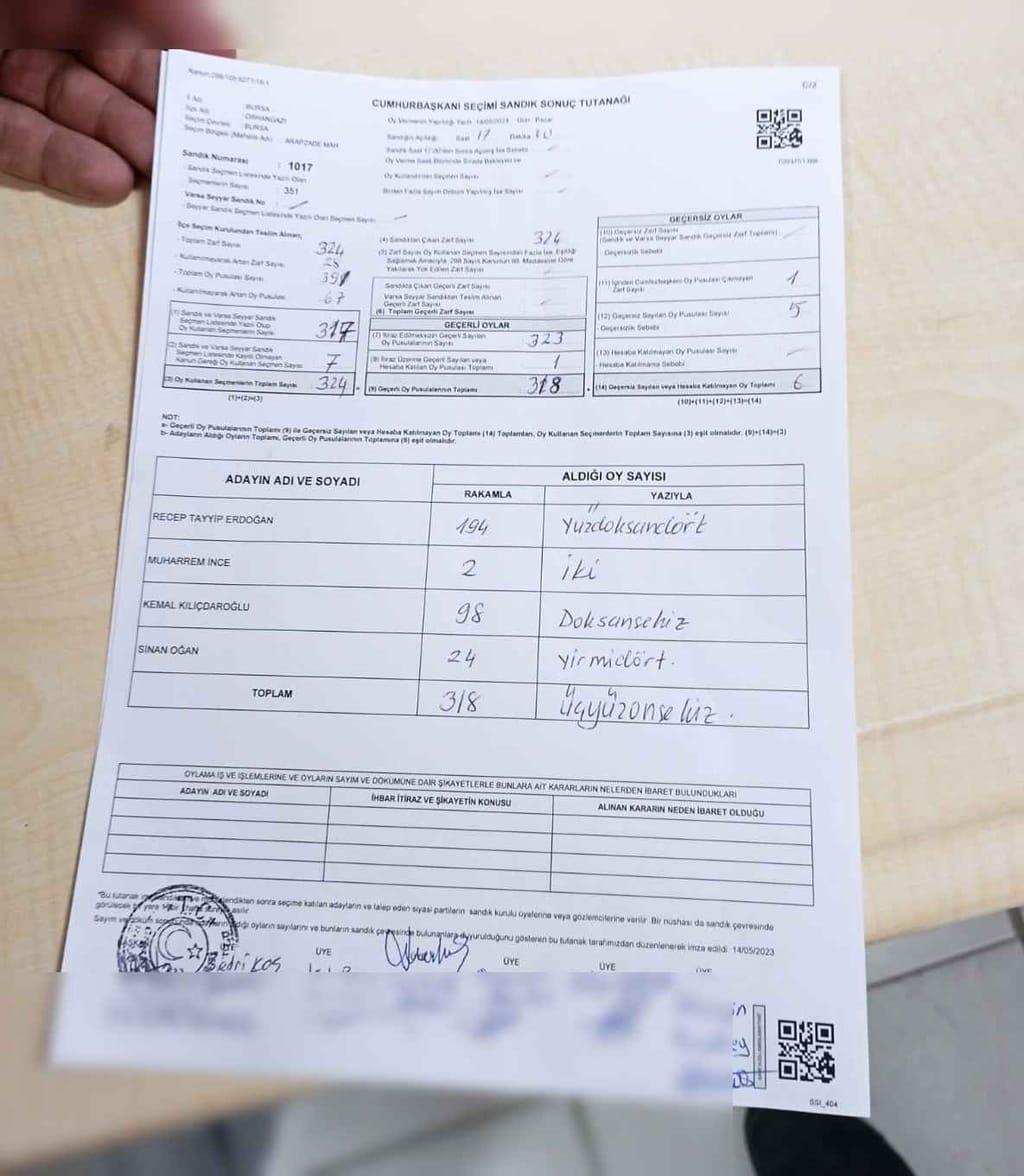 C/2
CUMHURBAŞKANI SEÇİMİ SANDIK SONUÇ TUTANAĞI
İl Adı : BURSA
İlçe Adı : ORHANGAZİ
Seçim Çevresi : BURSA
Seçim Bölgesi (Mahalle Adı) : ARAPZADE MAH
Oy Vermenin Yapıldığı Tarih 14/05/2023 Gün Pazar
Sandığın Açıldığı Saat 17 Dakika
Sandık Numarası : 1017
Sandık Seçmen Listesinde Yazılı Olan
Seçmenlerin Sayısı : 351
Varsa Seyyar Sandık No
Seyyar Sandık Seçmen Listesinde Yazılı Olan Seçmen Sayısı
Oy Kullandırılan Seçmen Sayısı
Birden Fazla Sayım Döküm Yapılmış İse Sayısı
İlçe Seçim Kurulundan Teslim Alınan;
- Toplam Zarf Sayısı
- Kullanılmayarak Artan Zarf Sayısı 28
- Toplam Oy Pusulası Sayısı 391
- Kullanılmayarak Artan Oy Pusulası 67
(1) Sandık ve Varsa Seyyar Sandık
Seçmen Listesinde Yazılı Olup
Oy Kullanan Seçmenlerin Sayısı 317
(2) Sandık ve Varsa Seyyar Sandık
Seçmen Listesinde Kayıtlı Olmayan
Kanun Gereği Oy Kullanan Seçmenlerin Sayısı 7
(3) Oy Kullanan Seçmenlerin Toplam Sayısı 324
(1)+(2)=(3)
(4) Sandıktan Çıkan Zarf Sayısı 324
(5) Zarf Sayısı Oy Kullanan Seçmen Sayısından Fazla İse, Eşitliği
Sağlamak Amacıyla, 298 Sayılı Kanunun 98. Maddesine Göre
Yakılarak Yok Edilen Zarf Sayısı
Sandıkta Çıkan Geçerli Zarf Sayısı
Varsa Seyyar Sandıktan Teslim Alınan
Geçerli Zarf Sayısı
(6) Toplam Geçerli Zarf Sayısı
GEÇERLİ OYLAR
(7) İtiraz Edilmeksizin Geçerli Sayılan
Oy Pusulasının Sayısı 323
(8) İtiraz Üzerine Geçerli Sayılan veya
Hesaba Katılan Oy Pusulası Toplamı 1
(9) Geçerli Oy Pusulalarının Toplamı 318
GEÇERSİZ OYLAR
(10) Geçersiz Zarf Sayısı
(Sandık ve Varsa Seyyar Sandık Geçersiz Zarf Toplamı)
Geçersizlik Sebebi
(11) İçinden Cumhurbaşkanı Oy Pusulası Çıkmayan
Zarf Sayısı 1
(12) Geçersiz Sayılan Oy Pusulası Sayısı 5
- Geçersizlik Sebebi
(13) Hesaba Katılmayan Oy Pusulası Sayısı
- Hesaba Katılmama Sebebi
(14) Geçersiz Sayılan veya Hesaba Katılmayan Oy Toplamı 6
(10)+(11)+(12)+(13)=(14)
NOT:
a- Geçerli Oy Pusulalarının Toplamı (9) ile Geçersiz Sayılan veya Hesaba Katılmayan Oy Toplamı (14) Toplamları, Oy Kullanan Seçmenlerin Toplam Sayısına (3) eşit olmalıdır. (9)+(14)=(3)
b- Adayların Aldığı Oyların Toplamı, Geçerli Oy Pusulalarının Toplamına (9) eşit olmalıdır.
ADAYIN ADI VE SOYADI ALDIĞI OY SAYISI
RAKAMLA YAZIYLA
RECEP TAYYİP ERDOĞAN 194 Yüzdoksandört
MUHARREM İNCE 2 İki
KEMAL KILIÇDAROĞLU 98 Doksansekiz
SİNAN OĞAN 24 Yirmidört.
TOPLAM 318 Üçyüzonsekiz.
OYLAMA İŞ VE İŞLEMLERİNE VE OYLARIN SAYIM VE DÖKÜMÜNE DAİR ŞİKAYETLERLE BUNLARA AİT KARARLARIN NELERDEN İBARET BULUNDUKLARI
ADAYIN ADI VE SOYADI İHBAR İTİRAZ VE ŞİKAYETİN KONUSU ALINAN KARARIN NEDEN İBARET OLDUĞU
sonra seçime katılan adayların ve talep eden siyasi partilerin sandık kurulu üyelerine veya gözlemcilerine verilir. Bir nüshası da sandık çevresinde
oyların sayılarını ve bunların sandık çevresinde bulunanlara duyurulduğunu gösteren bu tutanak tarafımızdan düzenlenerek imza edildi. 14/05/2023
ÜYE ÜYE ÜYE ÜYE
Bedri KOŞ
SSI_404